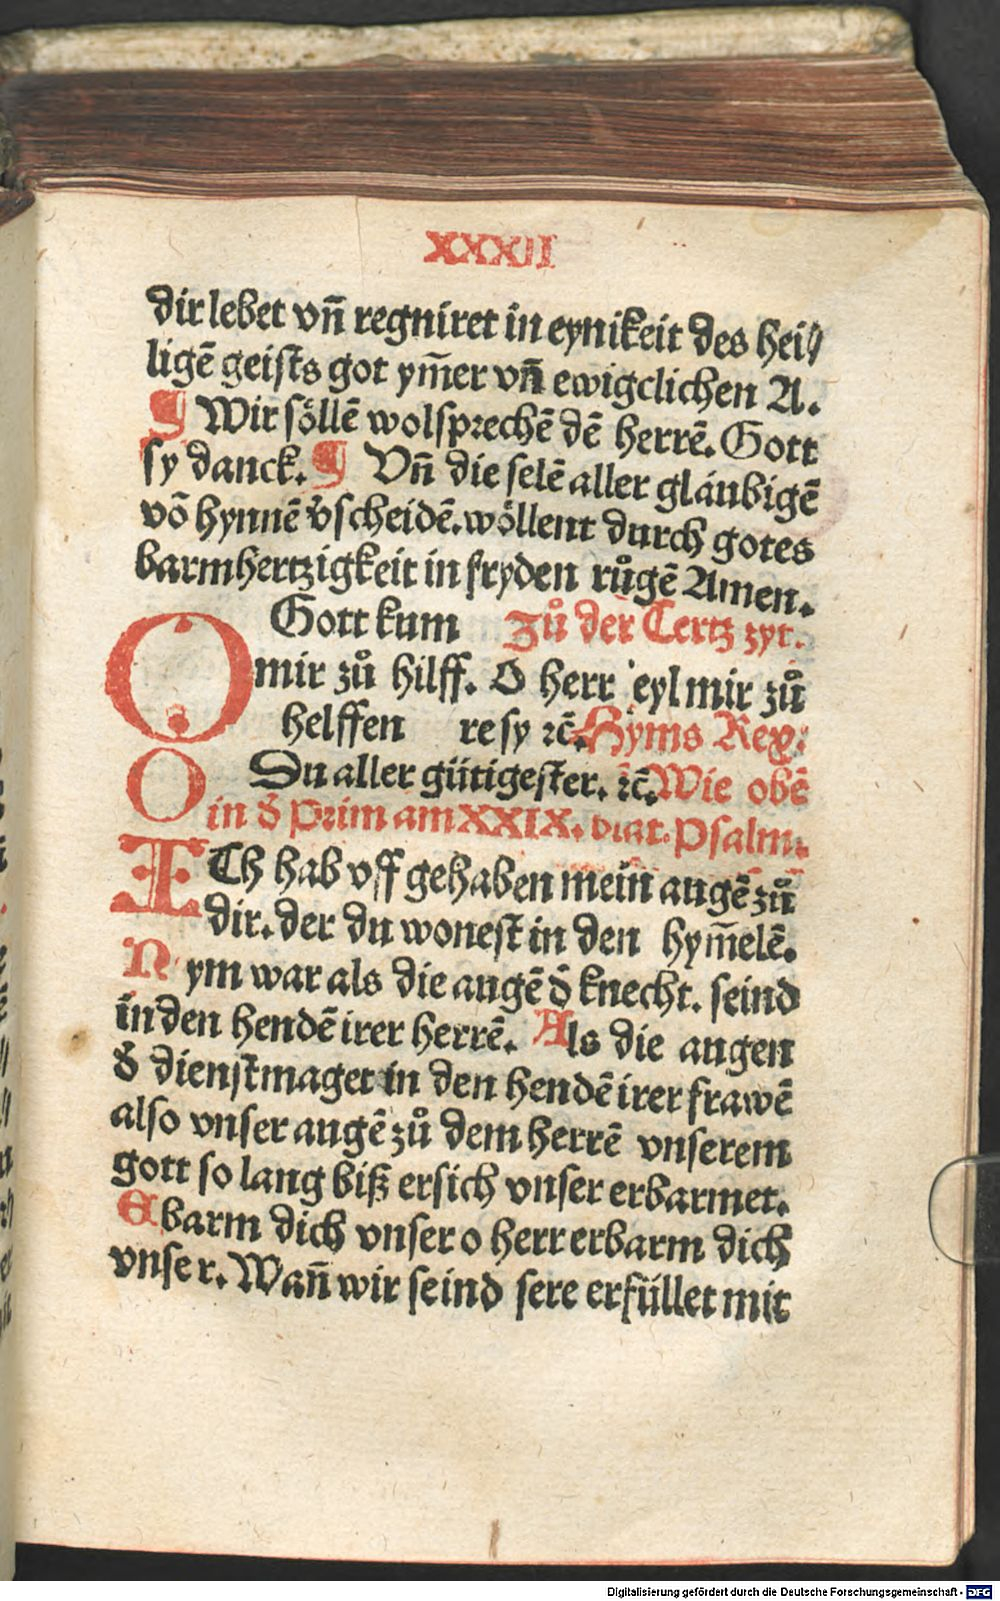 XXXII
dir lebet vñ regniret in eynikeit des hei⸗
ligē geists got ym̄er vñ ewigclichen A.
¶ Wir söllē wolsprechē dē herrē. Gott
sy danck. ¶ Vñ die selē aller gläubigē
vō hynnē v̄scheidē. wöllent durch gotes
barmhertzigkeit in fryden růgē Amen.
O Gott kum zů der Tertz zyt.
mir zů hilff. O herr eyl mir zů
helffen re sy ⁊c̄. Hyms Rex.
O Du aller gütigester. ⁊c̄. Wie obē
in d̄ Prim am XXIX. blat. Psalm.
ICh hab vff gehaben mein augē zů
dir. der du wonest in den hym̄elē.
Nym war als die augē d̄ knecht. seind
in den hendē irer herrē. Als die augen
d̄ dienstmaget in den hendē irer frawē
also vnser augē zů dem herrē vnserem
gott so lang biß er sich vnser erbarmet.
Ebarm dich vnser o herr erbarm dich
vnser. Wañ wir seind sere erfüllet mit
Digitalisierung gefördert durch die Deutsche Forschungsgemeinschaft - DFG